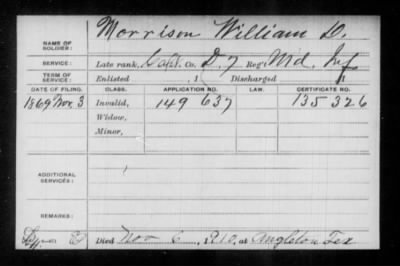 Morrison William D.
NAME OF SOLDIER:
SERVICE: Late rank, Capt. Co. D, 7 Reg't Md. Inf
TERM OF SERVICE: Enlisted , 1 Discharged , 1
DATE OF FILING. CLASS. APPLICATION NO. LAW. CERTIFICATE NO.
1869 Nov. 3 Invalid, 149 637 135 326
Widow,
Minor,
ADDITIONAL SERVICES:
REMARKS:
Died Nov 6, 1910, at Angleton Tex